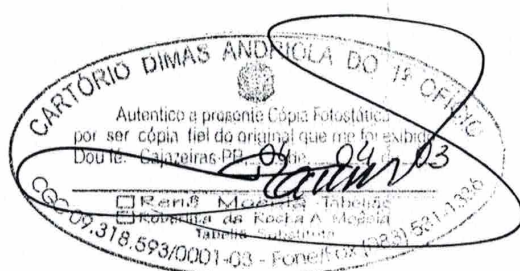 CARTÓRIO DIMAS ANDRIOLA DO 1º OFÍCIO
Autentico a presente Cópia Fotostática
por ser cópia fiel do original que me foi exibido
Dou fé. Cajazeiras-PB, 04 de 04 de 03
Tabeliã
da Rocha A. Moésia
Tabeliã Substituta
CGC 09.318.593/0001-03 - Fone/Fax (083) 531-1336